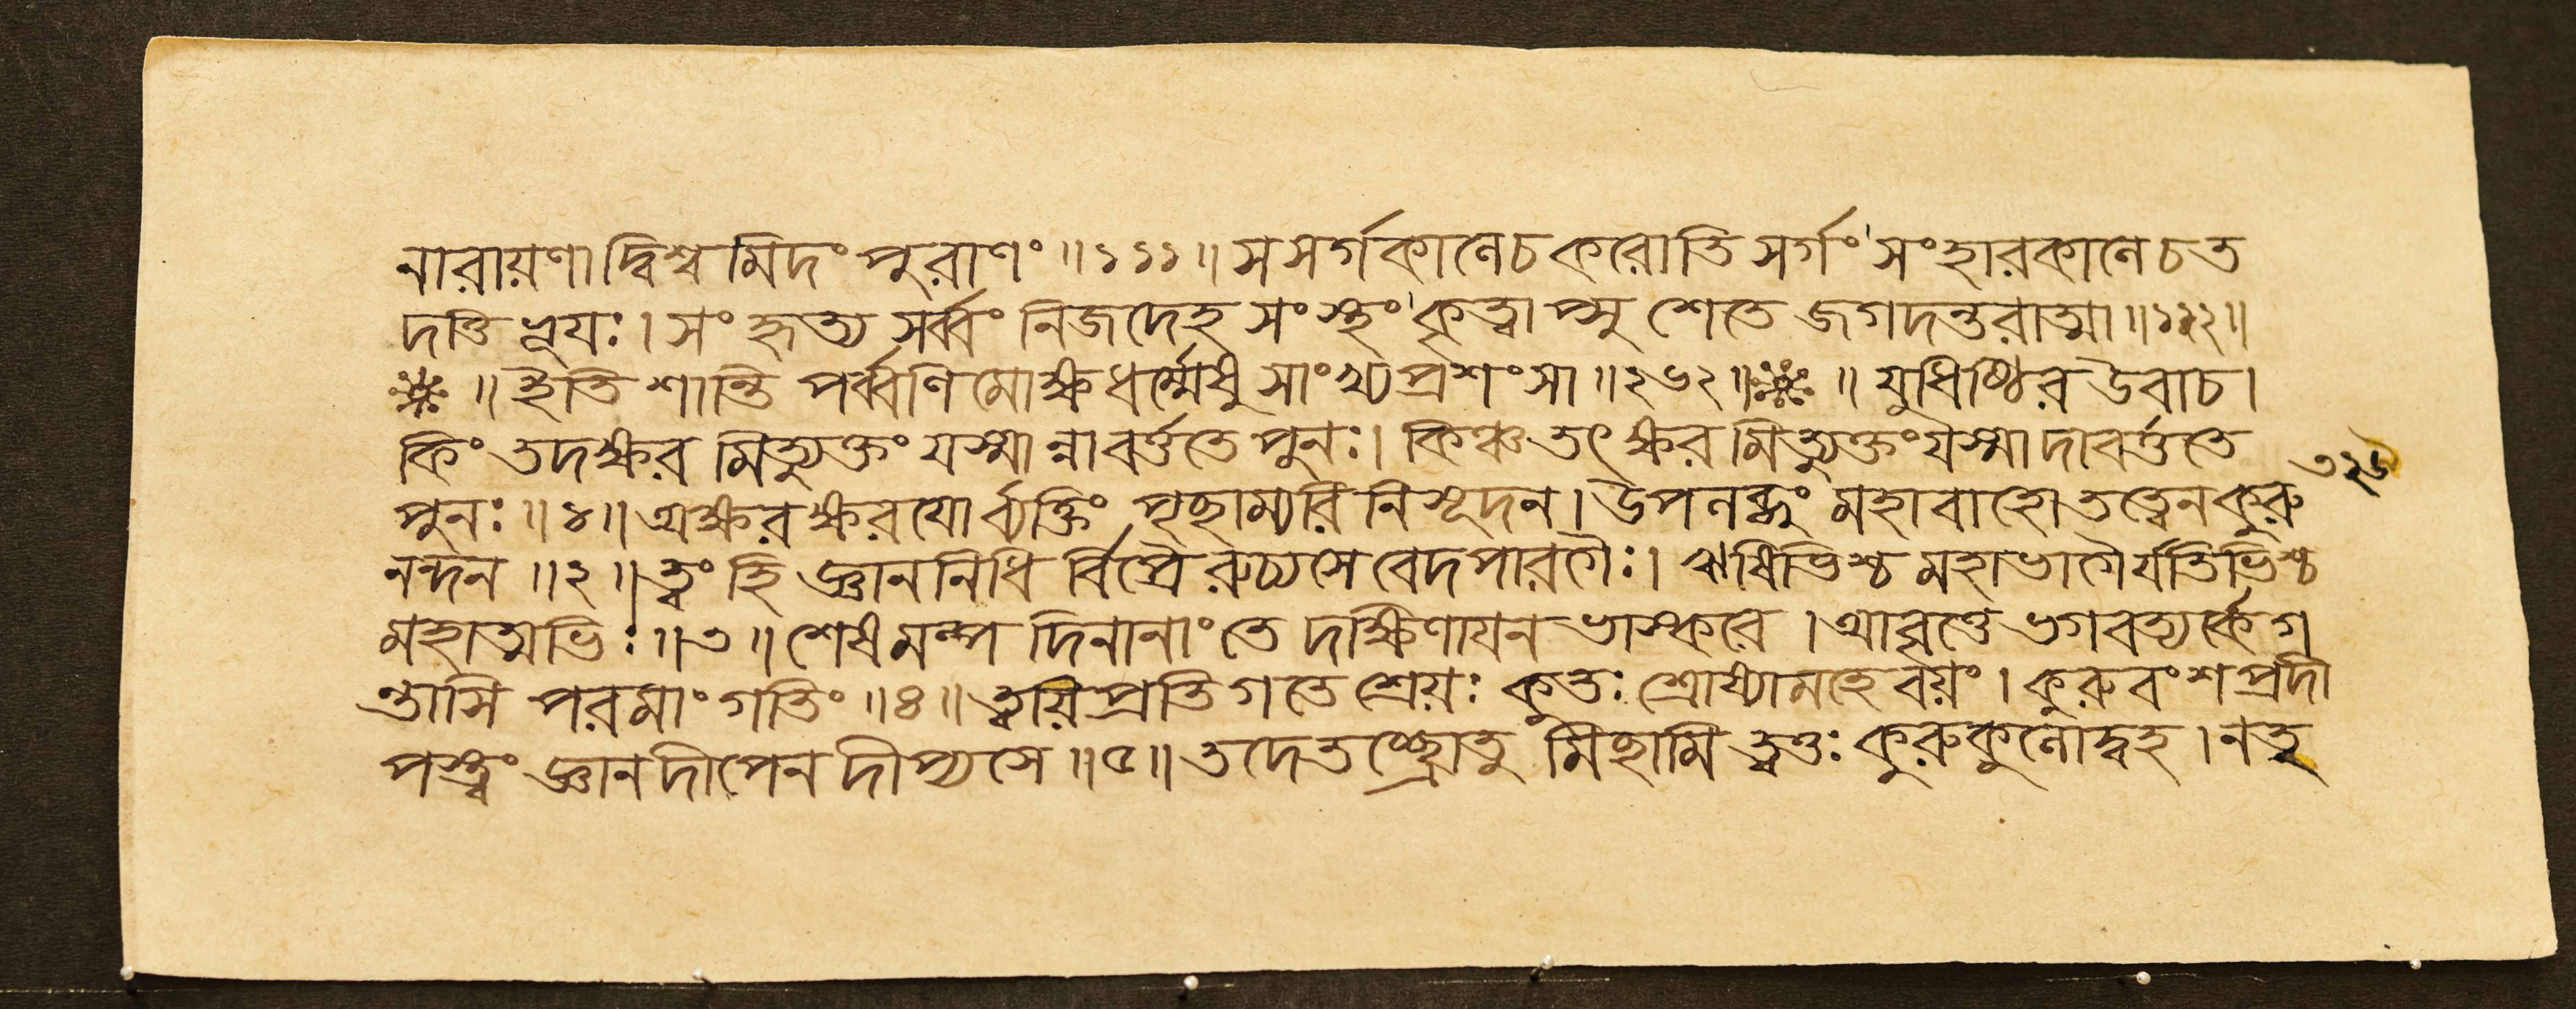 নারায়ণাদ্বিশ্বমিদং পুরাণং ॥১১১॥ স সর্গকালেচ করোতি সর্গং সংহারকালে চ ত
দত্তি ভূয়ঃ। সংহৃত্য সর্ব্বং নিজদেহসংস্থং কৃত্বাপ্সু শেতে জগদন্তরাত্মা ॥১১২॥
॥ ইতি শান্তিপর্ব্বণি মোক্ষধর্ম্মেষু সাংখ্যপ্রশংসা ॥২৬২॥ ॥ যুধিষ্ঠির উবাচ।
কিং তদক্ষরমিত্যুক্তং যস্মান্নাবর্ত্ততে পুনঃ। কিঞ্চ তৎক্ষরমিত্যুক্তং যস্মাদাবর্ত্ততে
পুনঃ ॥১॥ অক্ষরক্ষরযোর্ব্যক্তিং পৃছাম্যরিনিসূদন। উপলব্ধুং মহাবাহো তত্ত্বেন কুরু
নন্দন ॥২॥ ত্বং হি জ্ঞাননিধির্বিপ্রৈরুচ্যসে বেদপারগৈঃ। ঋষিভিশ্চ মহাভাগৈর্যতিভিশ্চ
মহাত্মভিঃ ॥৩॥ শেষমল্পদিনানাং তে দক্ষিণাযনভাস্করে। আবৃত্তে ভগবত্যর্কে গ
ন্তাসি পরমাং গতিং ॥৪॥ ত্বয়ি প্রতিগতে শ্রেয়ঃ কুতঃ শ্রোষ্যামহে বয়ং। কুরুবংশপ্রদী
পস্ত্বং জ্ঞানদীপেন দীপ্যসে ॥৫॥ তদেতচ্ছ্রোতুমিছামি ত্বত্তঃ কুরুকুলোদ্বহ। ন তৃ
৩২৬